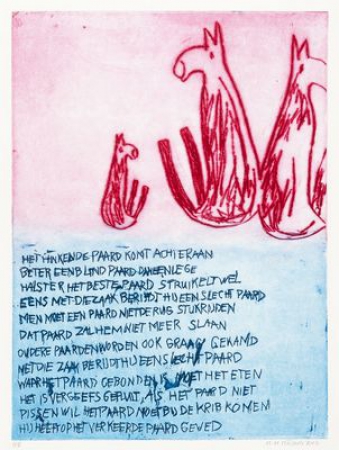 HET HINKENDE PAARD KOMT ACHTERAAN
BETER EEN BLIND PAARD DAN EEN LEGE
HALSTER HET BESTE PAARD STRUIKELT WEL
EENS MET DIE ZAAK BERIJDT HIJ EEN SLECHT PAARD
MEN MOET EEN PAARD NIET DE RUG STUKRIJDEN
DAT PAARD ZAL HEM NIET MEER SLAAN
OUDERE PAARDEN WORDEN OOK GRAAG GEKAMD
MET DIE ZAAK BERIJDT HIJ EEN SLECHT PAARD
WAAR HET PAARD GEBONDEN IS MOET HET ETEN
HET IS VERGEEFS GEFLUIT, ALS HET PAARD NIET
PISSEN WIL HET PAARD MOET BIJ DE KRIB KOMEN
HIJ HEEFT OP HET VERKEERDE PAARD GEWED